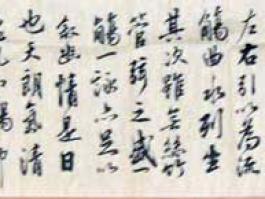 左右引以為流
觴曲水列坐
其次雖無絲
管弦之盛一
觴一詠亦足以
敘幽情是日
也天朗氣清